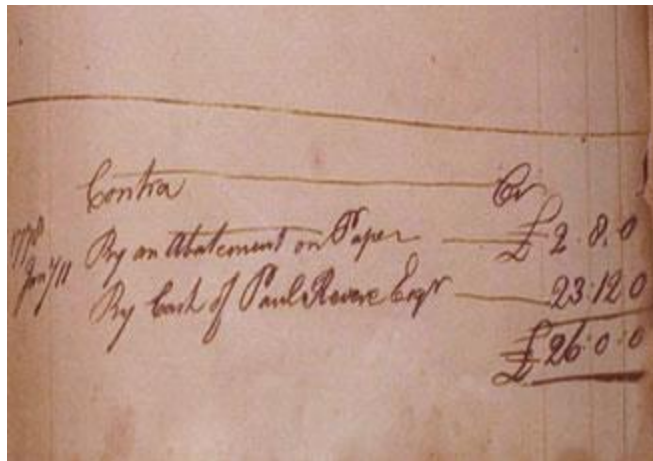 Contra Cr
1778
By an Abatement on Paper £2.8.0
Jany 11 By Cash of Paul Revere Esqr 23.12.0
£26.0.0